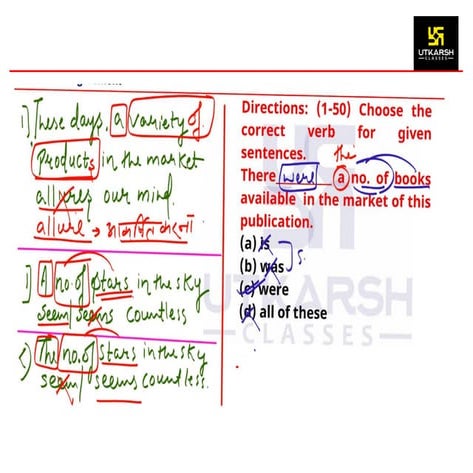 UTKARSH
CLASSES
1) These days, a variety of
Products in the market
allures our mind
allure → आकर्षित करना
1) A no. of stars in the sky
seem/seems countless
The no. of stars in the sky
seem/seems countless.
Directions: (1-50) Choose the
correct verb for given
sentences.
the
There were a no. of books
available in the market of this
publication.
(a) is
(b) was
S.
(c) were
(d) all of these
UTKARSH
CLASSES